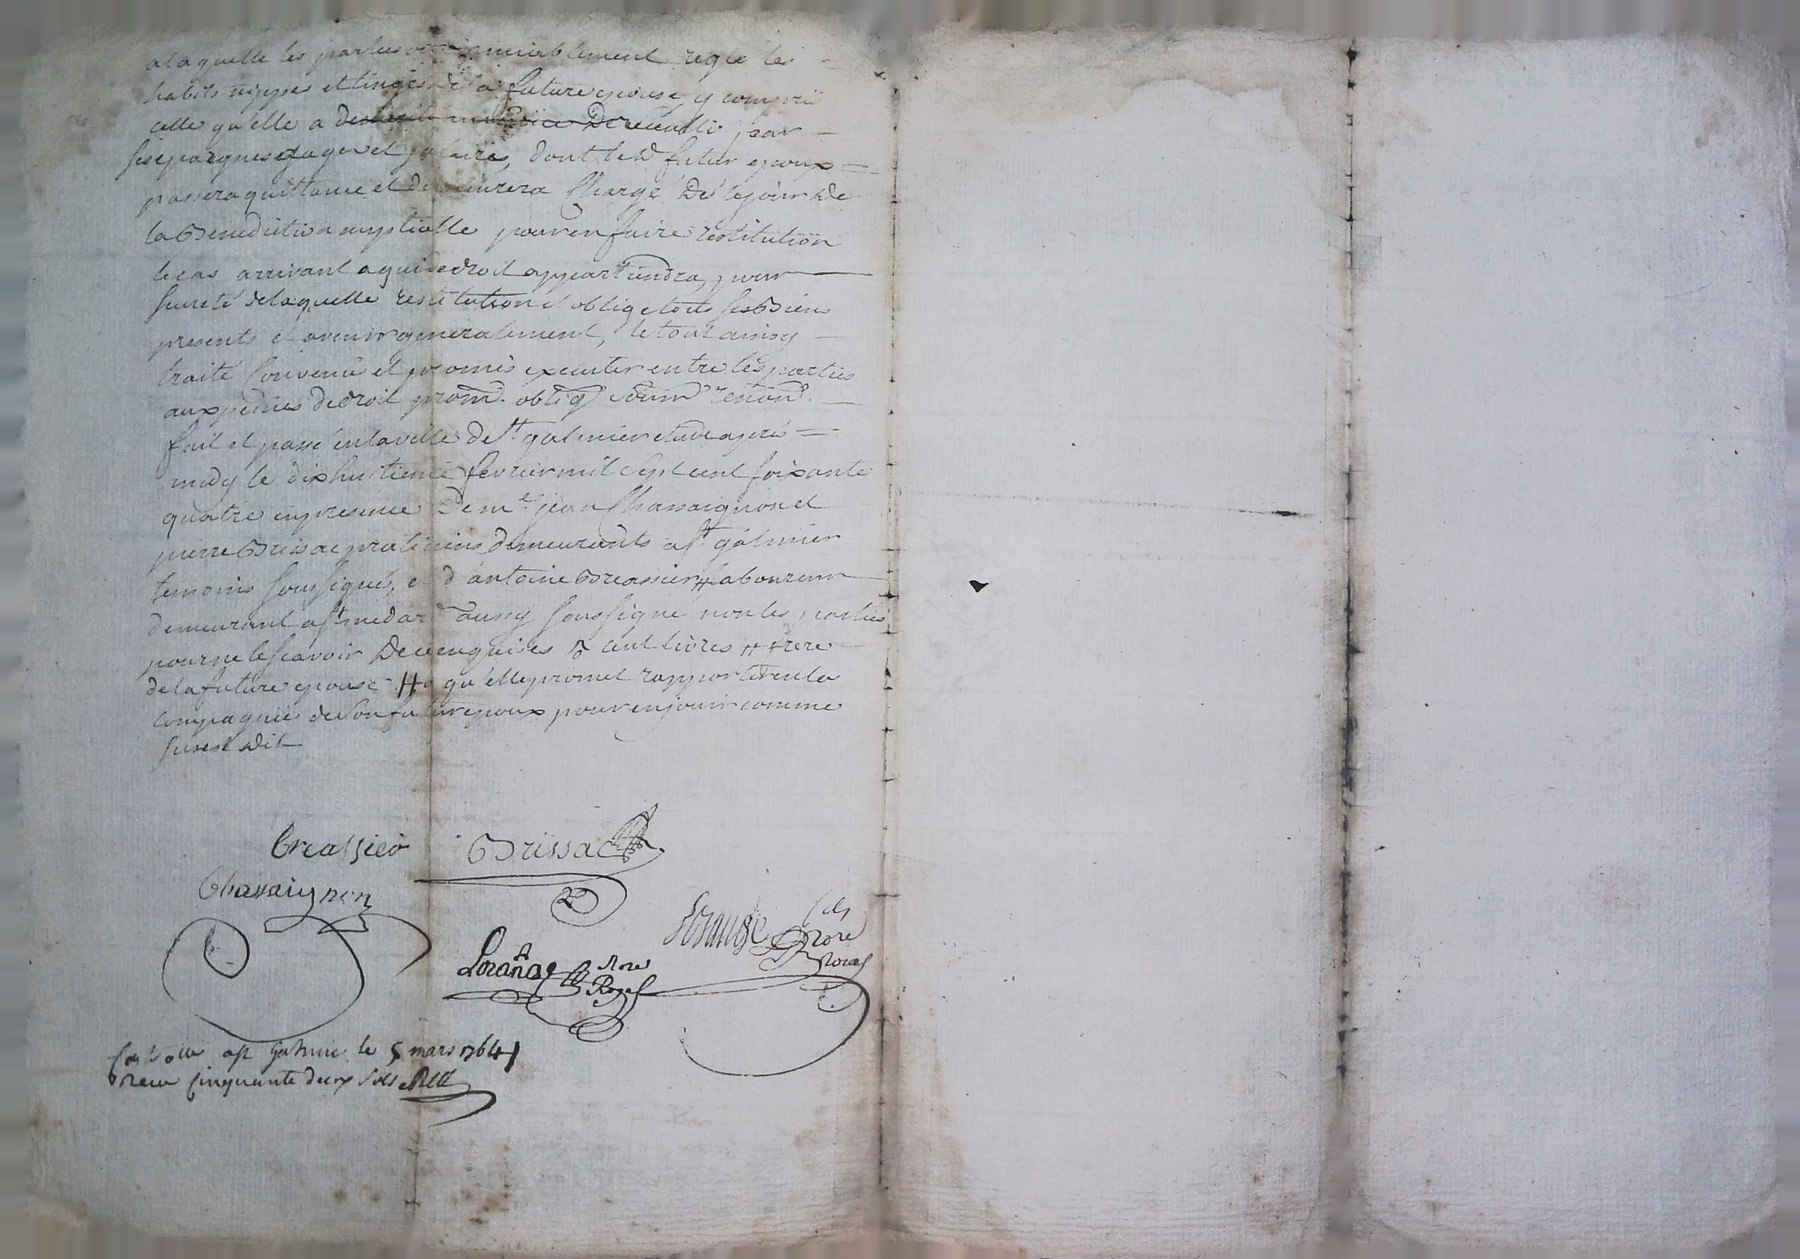 a laquelle les parties ont amiablement reglé les
habits nippes et linges de la future epouse, y compris
celle qu'elle a par
ses epargnes gages et salaires, dont led futur epoux
passera quittance et demeurera chargé des le jour de
la Benediction nuptialle pour en faire restitution
le cas arrivant a qui de droit appartiendra, pour
sureté de laquelle restitution il oblige tous ses Biens
presents et avenir generalement, le tout ainsy
traité convenu et promis executer entre les parties
aux peines de droit prom. obliq soum renon.
fait et passé en la ville de st galmier etude apres
midy le dix huitieme fevrier mil sept cent soixante
quatre en presence de me. jean Chassaignon et
pierre Brissac praticiens demeurants a st galmier
temoins soussignes, et d'antoine Breassier # laboureur
demeurant a st medard aussy soussigné non les parties
pour ne le scavoir De ce enquises cent livres ## frere
de la future epouse # qu'elle promet rapporter en la
compagnie de son futur epoux pour en jouir comme
sus est dit
Breassier Brissac
Chassaignon
fils
nore
Noras
Lorañge Nore
Royal
a st galmier le 5 mars 1764
Receu cinquante deux sols